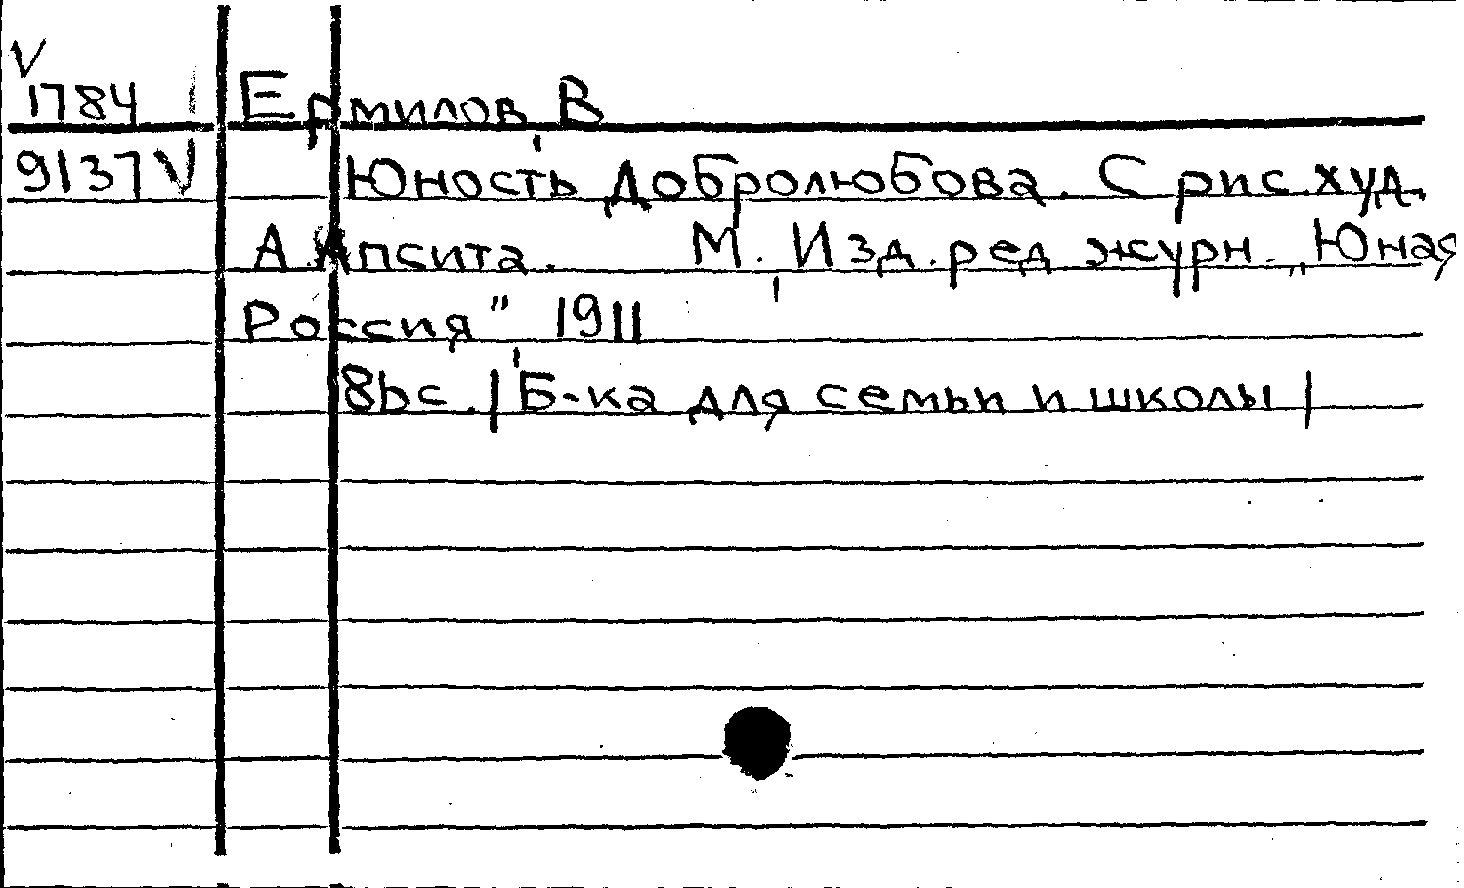 V
1784 Ермилов, В
9137 V Юность Добролюбова. С рис. худ.
А. Апсита. М., Изд. ред. журн. „Юная
Россия", 1911
86с. | Б-ка для семьи и школы |